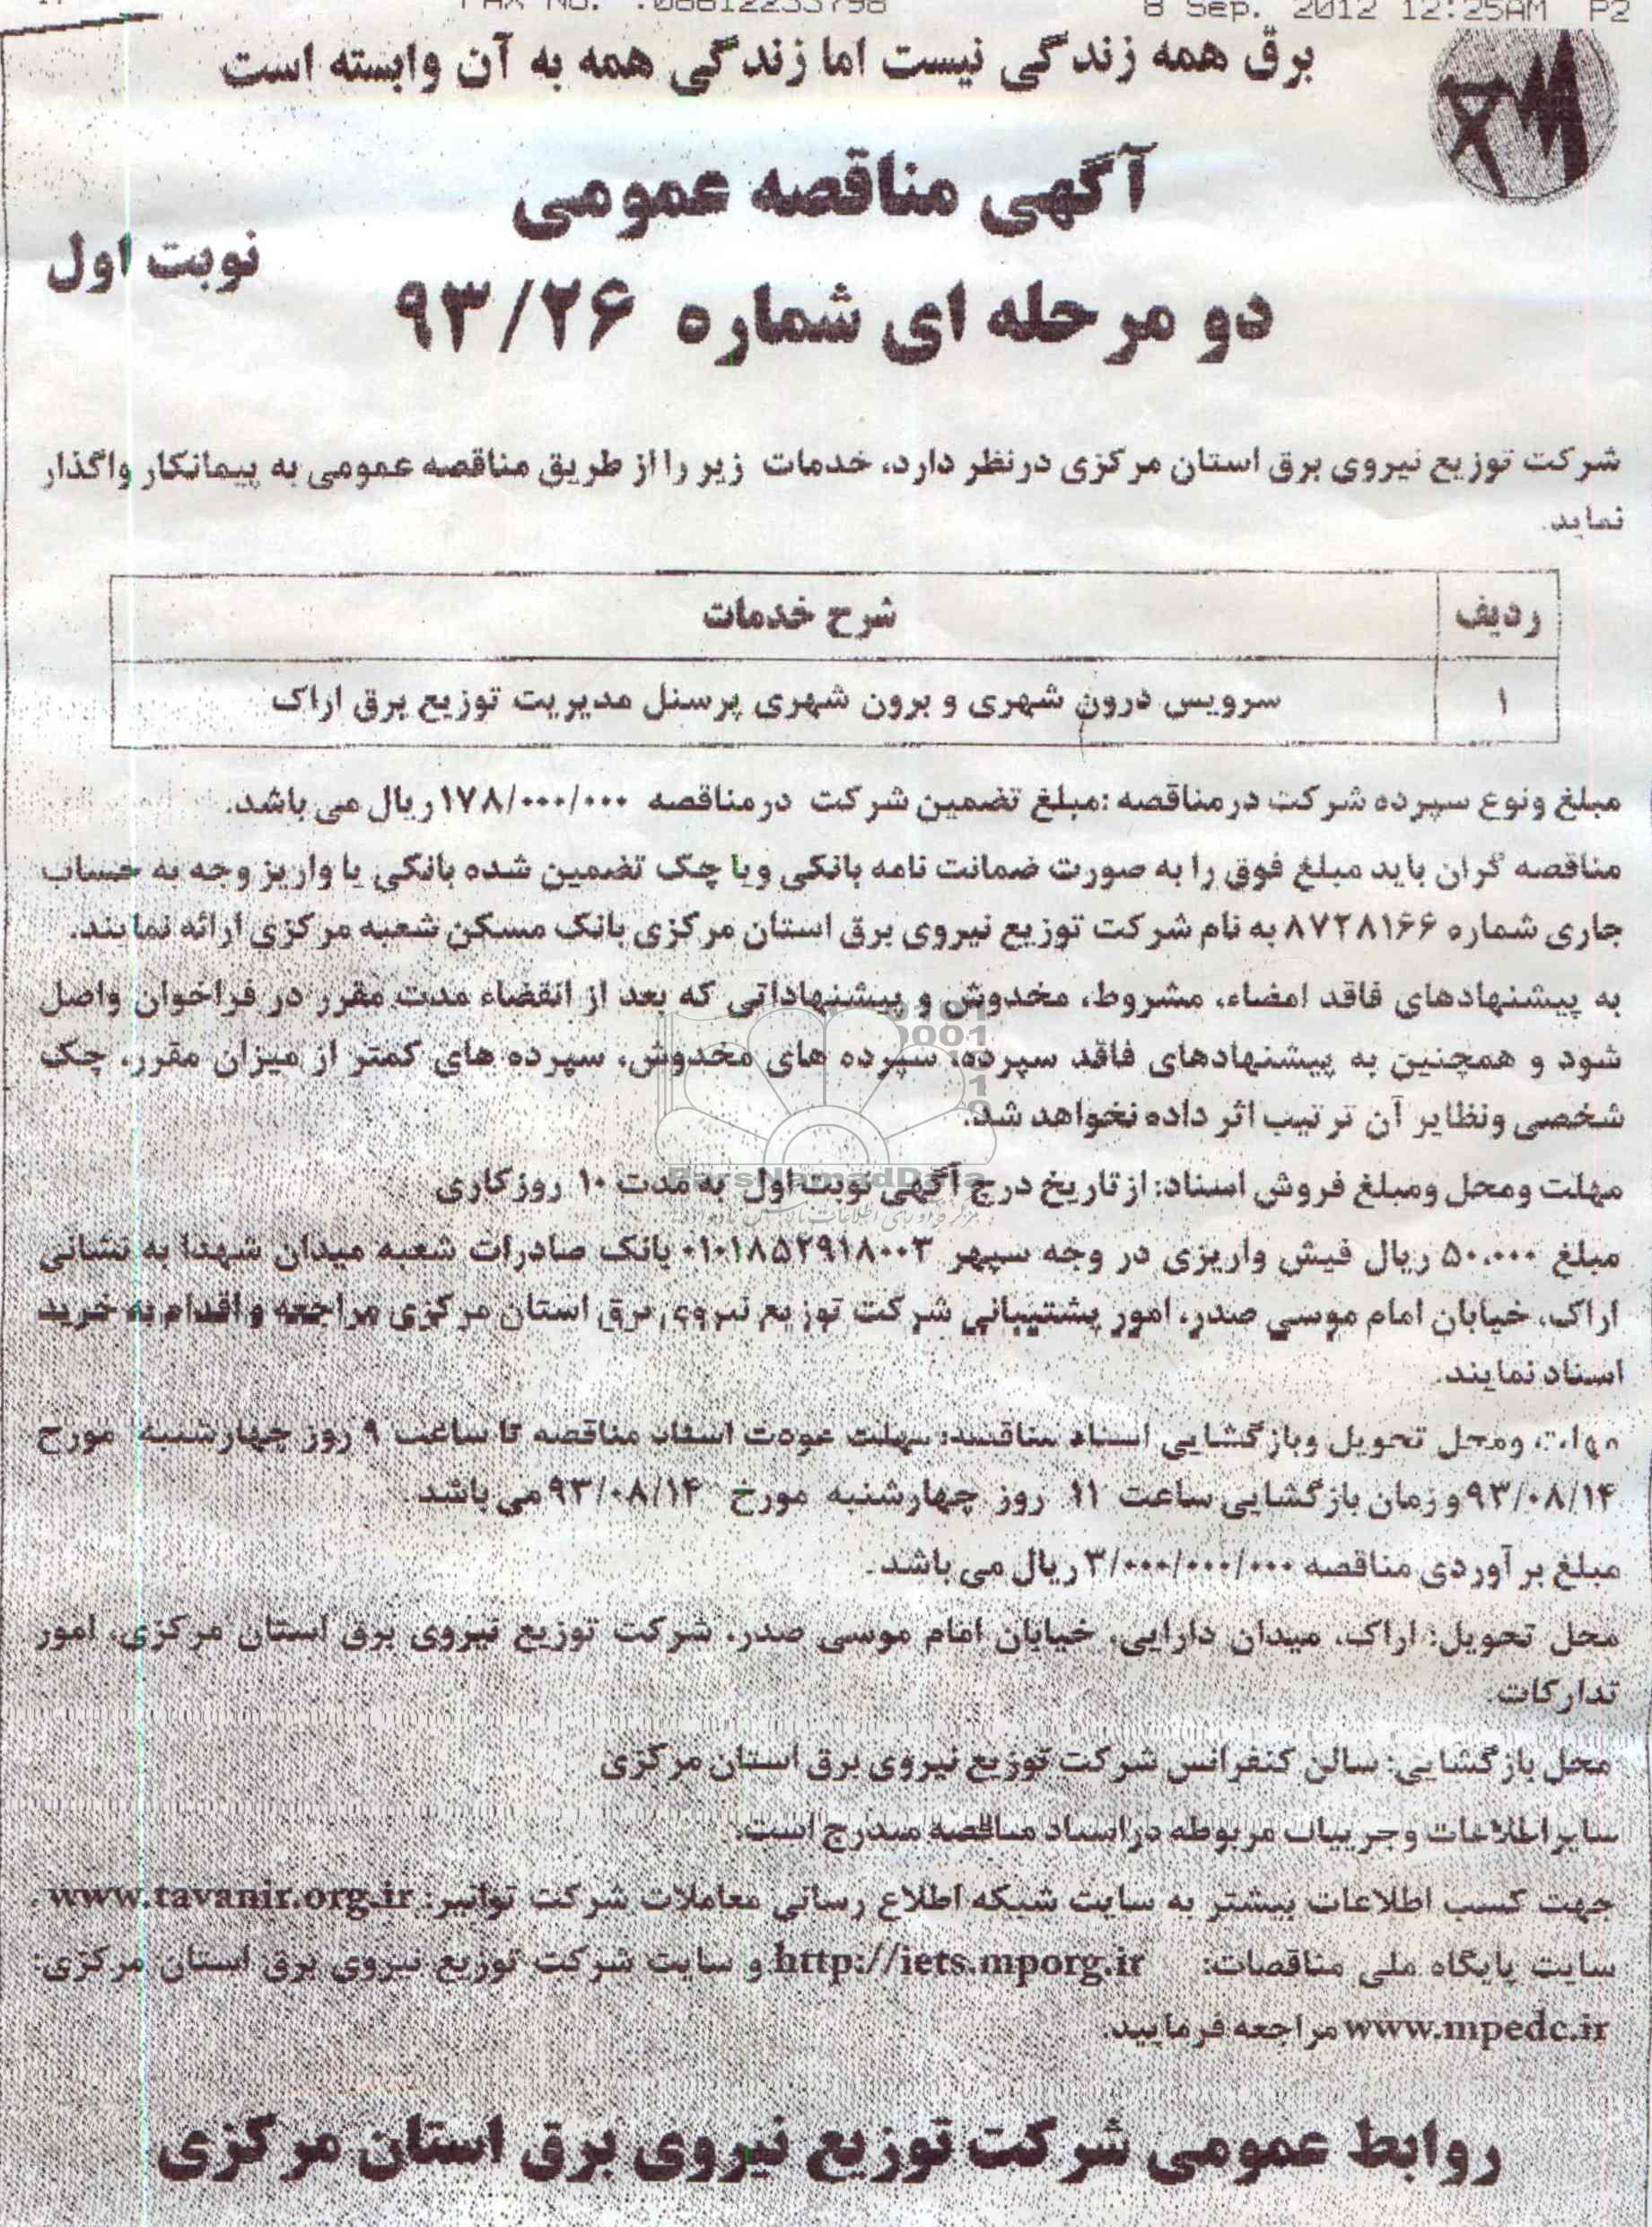 FAX NO. :08612233798 8 Sep. 2012 12:25AM P2
برق همه زندگی نیست اما زندگی همه به آن وابسته است
آگهی مناقصه عمومی
نوبت اول
دو مرحله ای شماره ۹۳/۲۶
شرکت توزیع نیروی برق استان مرکزی درنظر دارد، خدمات زیر را از طریق مناقصه عمومی به پیمانکار واگذار
نماید.
ردیف شرح خدمات
۱ سرویس درون شهری و برون شهری پرسنل مدیریت توزیع برق اراک
مبلغ ونوع سپرده شرکت درمناقصه :مبلغ تضمین شرکت درمناقصه ۱۷۸/۰۰۰/۰۰۰ریال می باشد.
مناقصه گران باید مبلغ فوق را به صورت ضمانت نامه بانکی ویا چک تضمین شده بانکی یا واریز وجه به حساب
جاری شماره ۸۷۲۸۱۶۶ به نام شرکت توزیع نیروی برق استان مرکزی بانک مسکن شعبه مرکزی ارائه نمایند.
به پیشنهادهای فاقد امضاء، مشروط، مخدوش و پیشنهاداتی که بعد از انقضاء مدت مقرر در فراخوان واصل
شود و همچنین به پیشنهادهای فاقد سپرده، سپرده های مخدوش، سپرده های کمتر از میزان مقرر، چک
شخصی ونظایر آن ترتیب اثر داده نخواهد شد.
مهلت ومحل ومبلغ فروش اسناد: از تاریخ درج آگهی نوبت اول به مدت ۱۰ روز کاری
ParsNamadData
مبلغ ۵۰.۰۰۰ ریال فیش واریزی در وجه سپهر ۰۱۰۱۸۵۲۹۱۸۰۰۳ بانک صادرات شعبه میدان شهدا به نشانی
اراک، خیابان امام موسی صدر، امور پشتیبانی شرکت توزیع نیروی برق استان مرکزی مراجعه و اقدام به خرید
اسناد نمایند.
مهلت ومحل تحویل وبازگشایی اسناد مناقصه: مهلت عودت اسناد مناقصه تا ساعت ۹ روز چهارشنبه مورخ
۹۳/۰۸/۱۴و زمان بازگشایی ساعت ۱۱ روز چهارشنبه مورخ ۹۳/۰۸/۱۴ می باشد.
مبلغ برآوردی مناقصه ۳/۰۰۰/۰۰۰/۰۰۰ ریال می باشد.
محل تحویل: اراک، میدان دارایی، خیابان امام موسی صدر، شرکت توزیع نیروی برق استان مرکزی، امور
تدارکات.
محل بازگشایی: سالن کنفرانس شرکت توزیع نیروی برق استان مرکزی
سایراطلاعات وجزییات مربوطه دراسناد مناقصه مندرج است.
جهت کسب اطلاعات بیشتر به سایت شبکه اطلاع رسانی معاملات شرکت توانیر: www.tavanir.org.ir .
سایت پایگاه ملی مناقصات: http://iets.mporg.ir و سایت شرکت توزیع نیروی برق استان مرکزی:
www.mpedc.ir مراجعه فرمایید.
روابط عمومی شرکت توزیع نیروی برق استان مرکزی